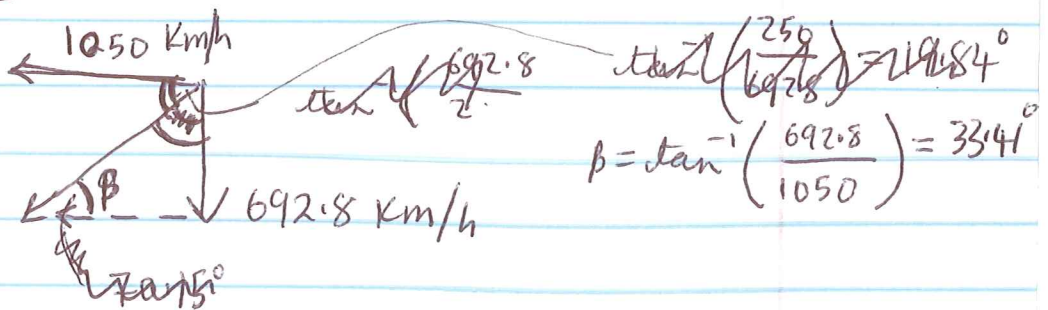 1050 Km/h
tan⁻¹(692.8/2.
tan⁻¹(250/692.8) = 19.84°
β = tan⁻¹(692.8/1050) = 33.41°
β
692.8 Km/h